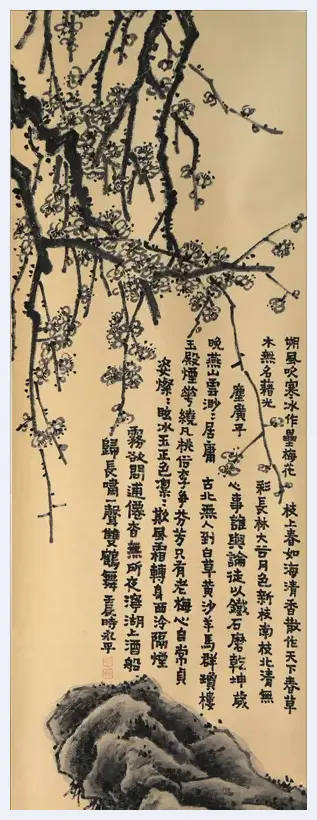 朔風吹寒冰作壘梅花 枝上春如海清香散作天下春草
木無名藉光 彩長林大谷月色新枝南枝北清無
塵廣平 心事誰與論徒以鐵石磨乾坤歲
晚燕山雲渺:居庸 古北無人到白草黄沙羊馬群瓊樓
玉殿煙華繞凡桃俗李爭芬芳只有老梅心自常貞
姿燦:眩冰玉正色凛:欺風霜轉身西泠隔煙
霧欲問逋僊杳無所夜深湖上酒船
歸長嘯一聲雙鶴舞 辰時永平